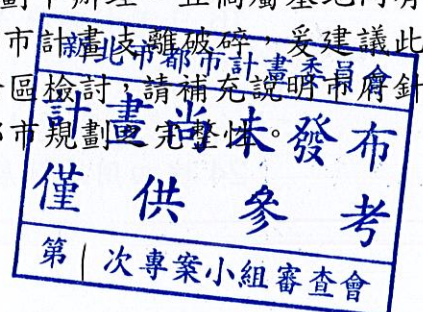 劃下辦理。且倘屬基地內有
市計畫支離破碎，爰建議此
區檢討，請補充說明市府針
市規劃之完整性。
新北市都市計畫委員會
計畫尚未發布
僅供參考
第1次專案小組審查會